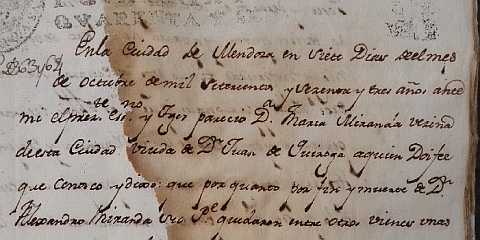 QUARENTA
En la Ciudad de Mendoza en siete Dias del mes
de octubre de mil setecientos y sesenta y tres años ante
mi el pres.te Ess.no y tgos parecio D.a Maria Miranda vezina
de esta Ciudad viuda de D.n Juan de Quiroga a quien Doi fee
que conosco y dixo: que por quanto por fin y muerte de D.n
Alexandro Miranda su P.e quedaron entre otros vienes unas